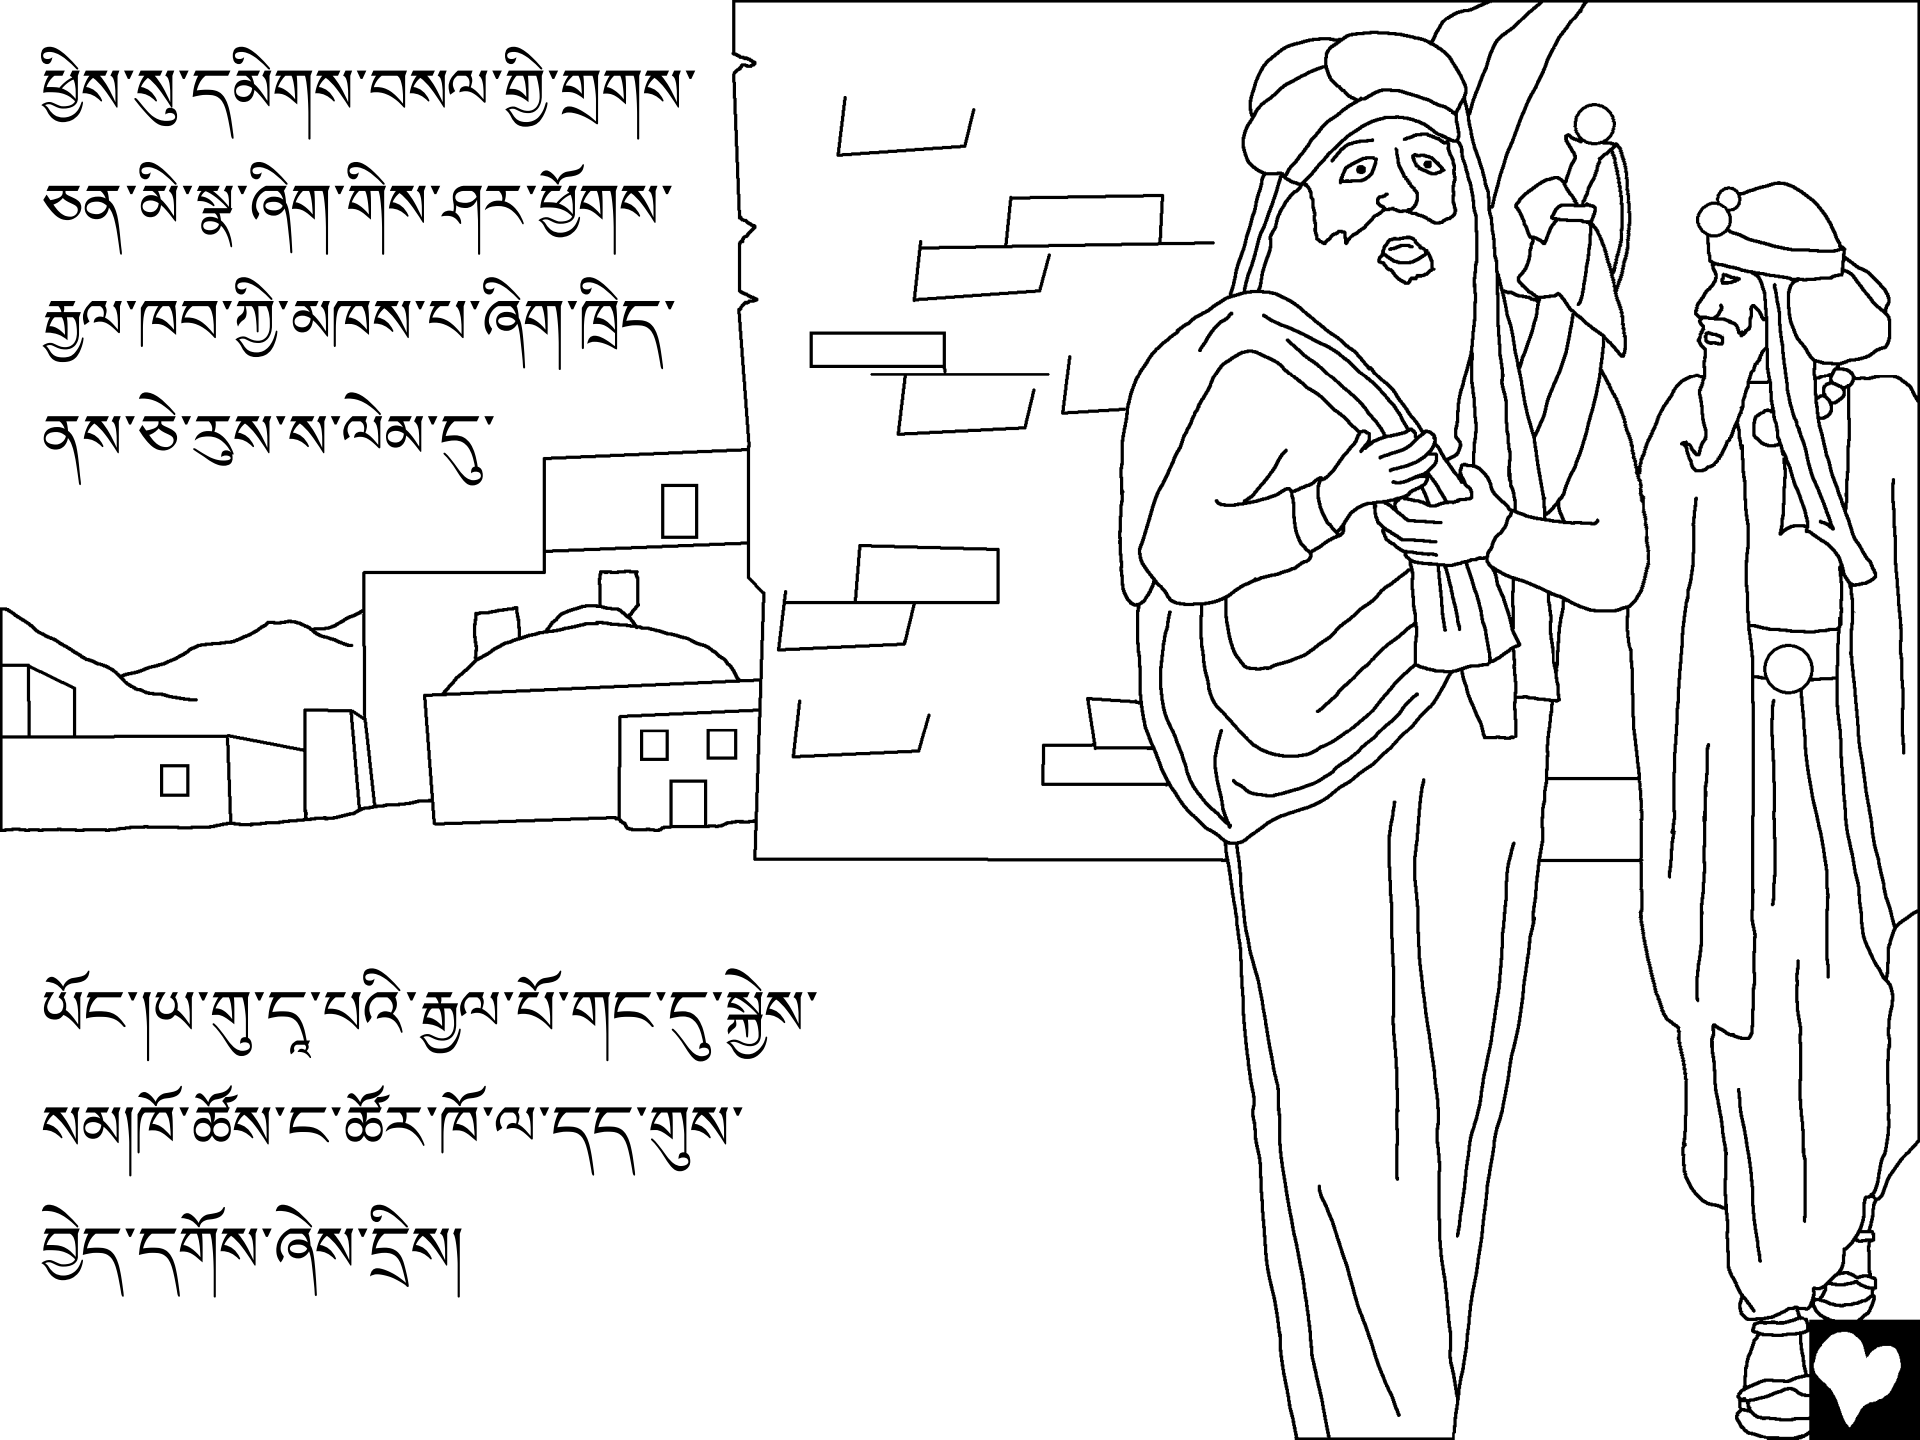 ཕྱིས་སུ་དམིགས་བསལ་གྱི་གྲགས་
ཅན་མི་སྣ་ཞིག་གིས་ཤར་ཕྱོགས་
རྒྱལ་ཁབ་ཀྱི་མཁས་པ་ཞིག་ཁྲིད་
ནས་ཅེ་རུས་ས་ལེམ་དུ་
ཡོང་།ཡ་གུ་དཱ་པའི་རྒྱལ་པོ་གང་དུ་སྐྱེས་
སམ།ཁོ་ཚོས་ང་ཚོར་ཁོ་ལ་དད་གུས་
བྱེད་དགོས་ཞེས་དྲིས།